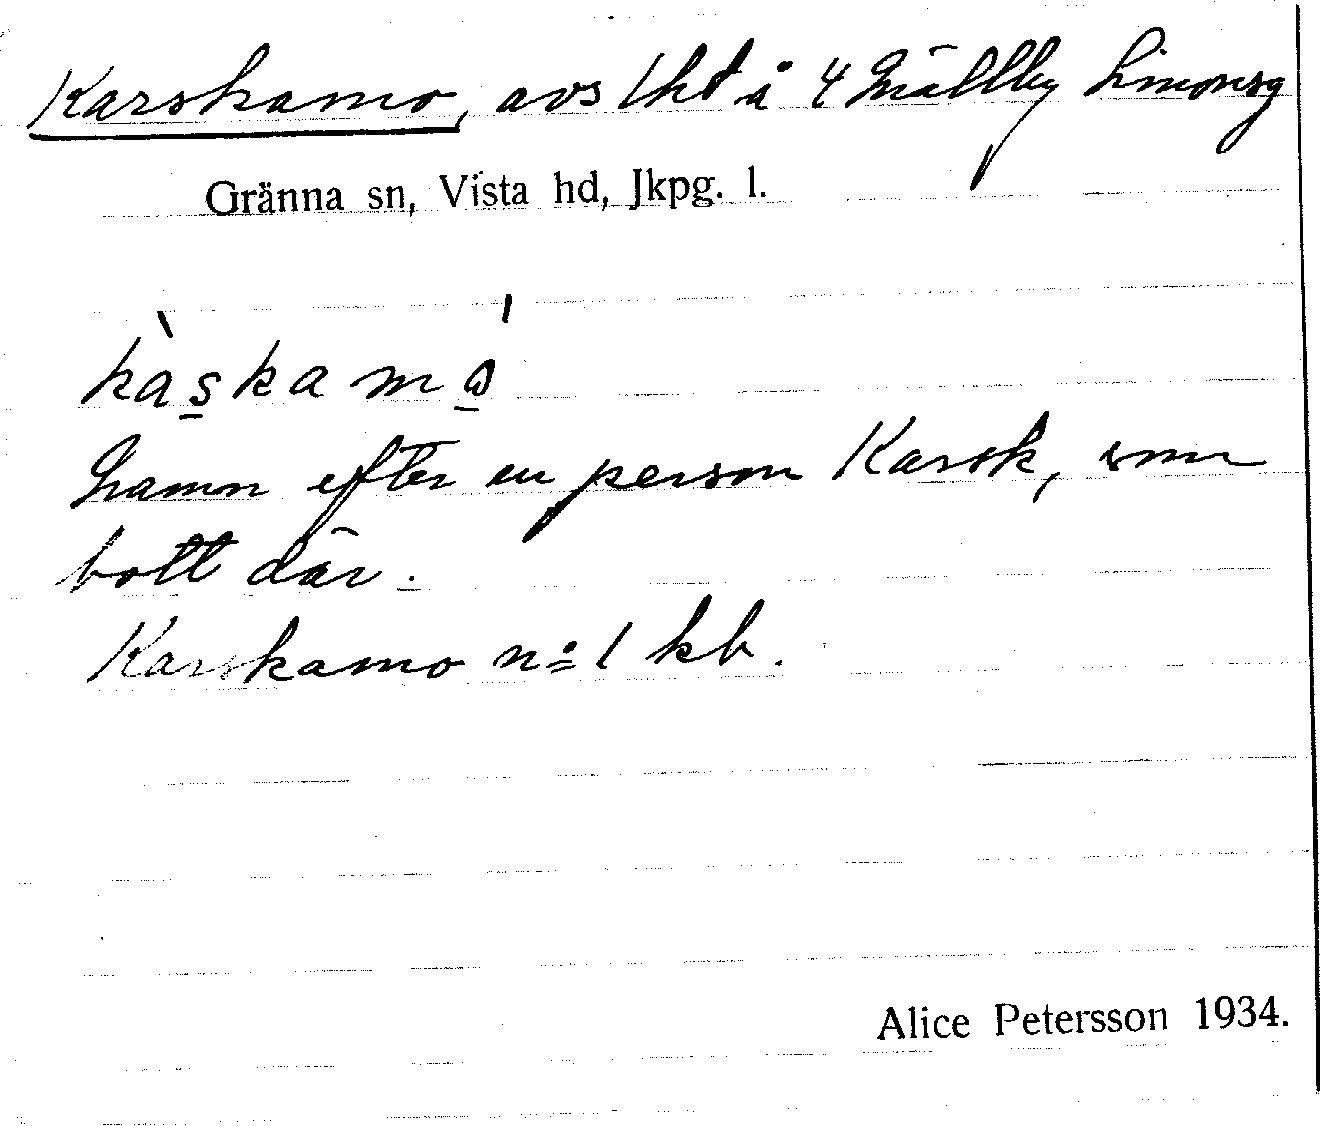 Karskamo, avs lht å 4 Mällby Simonsg
Gränna sn, Vista hd, Jkpg. l.
kàskamó
Namn efter en person Karsk, som
bott där.
Karskamo no 1 kb.
Alice Petersson 1934.